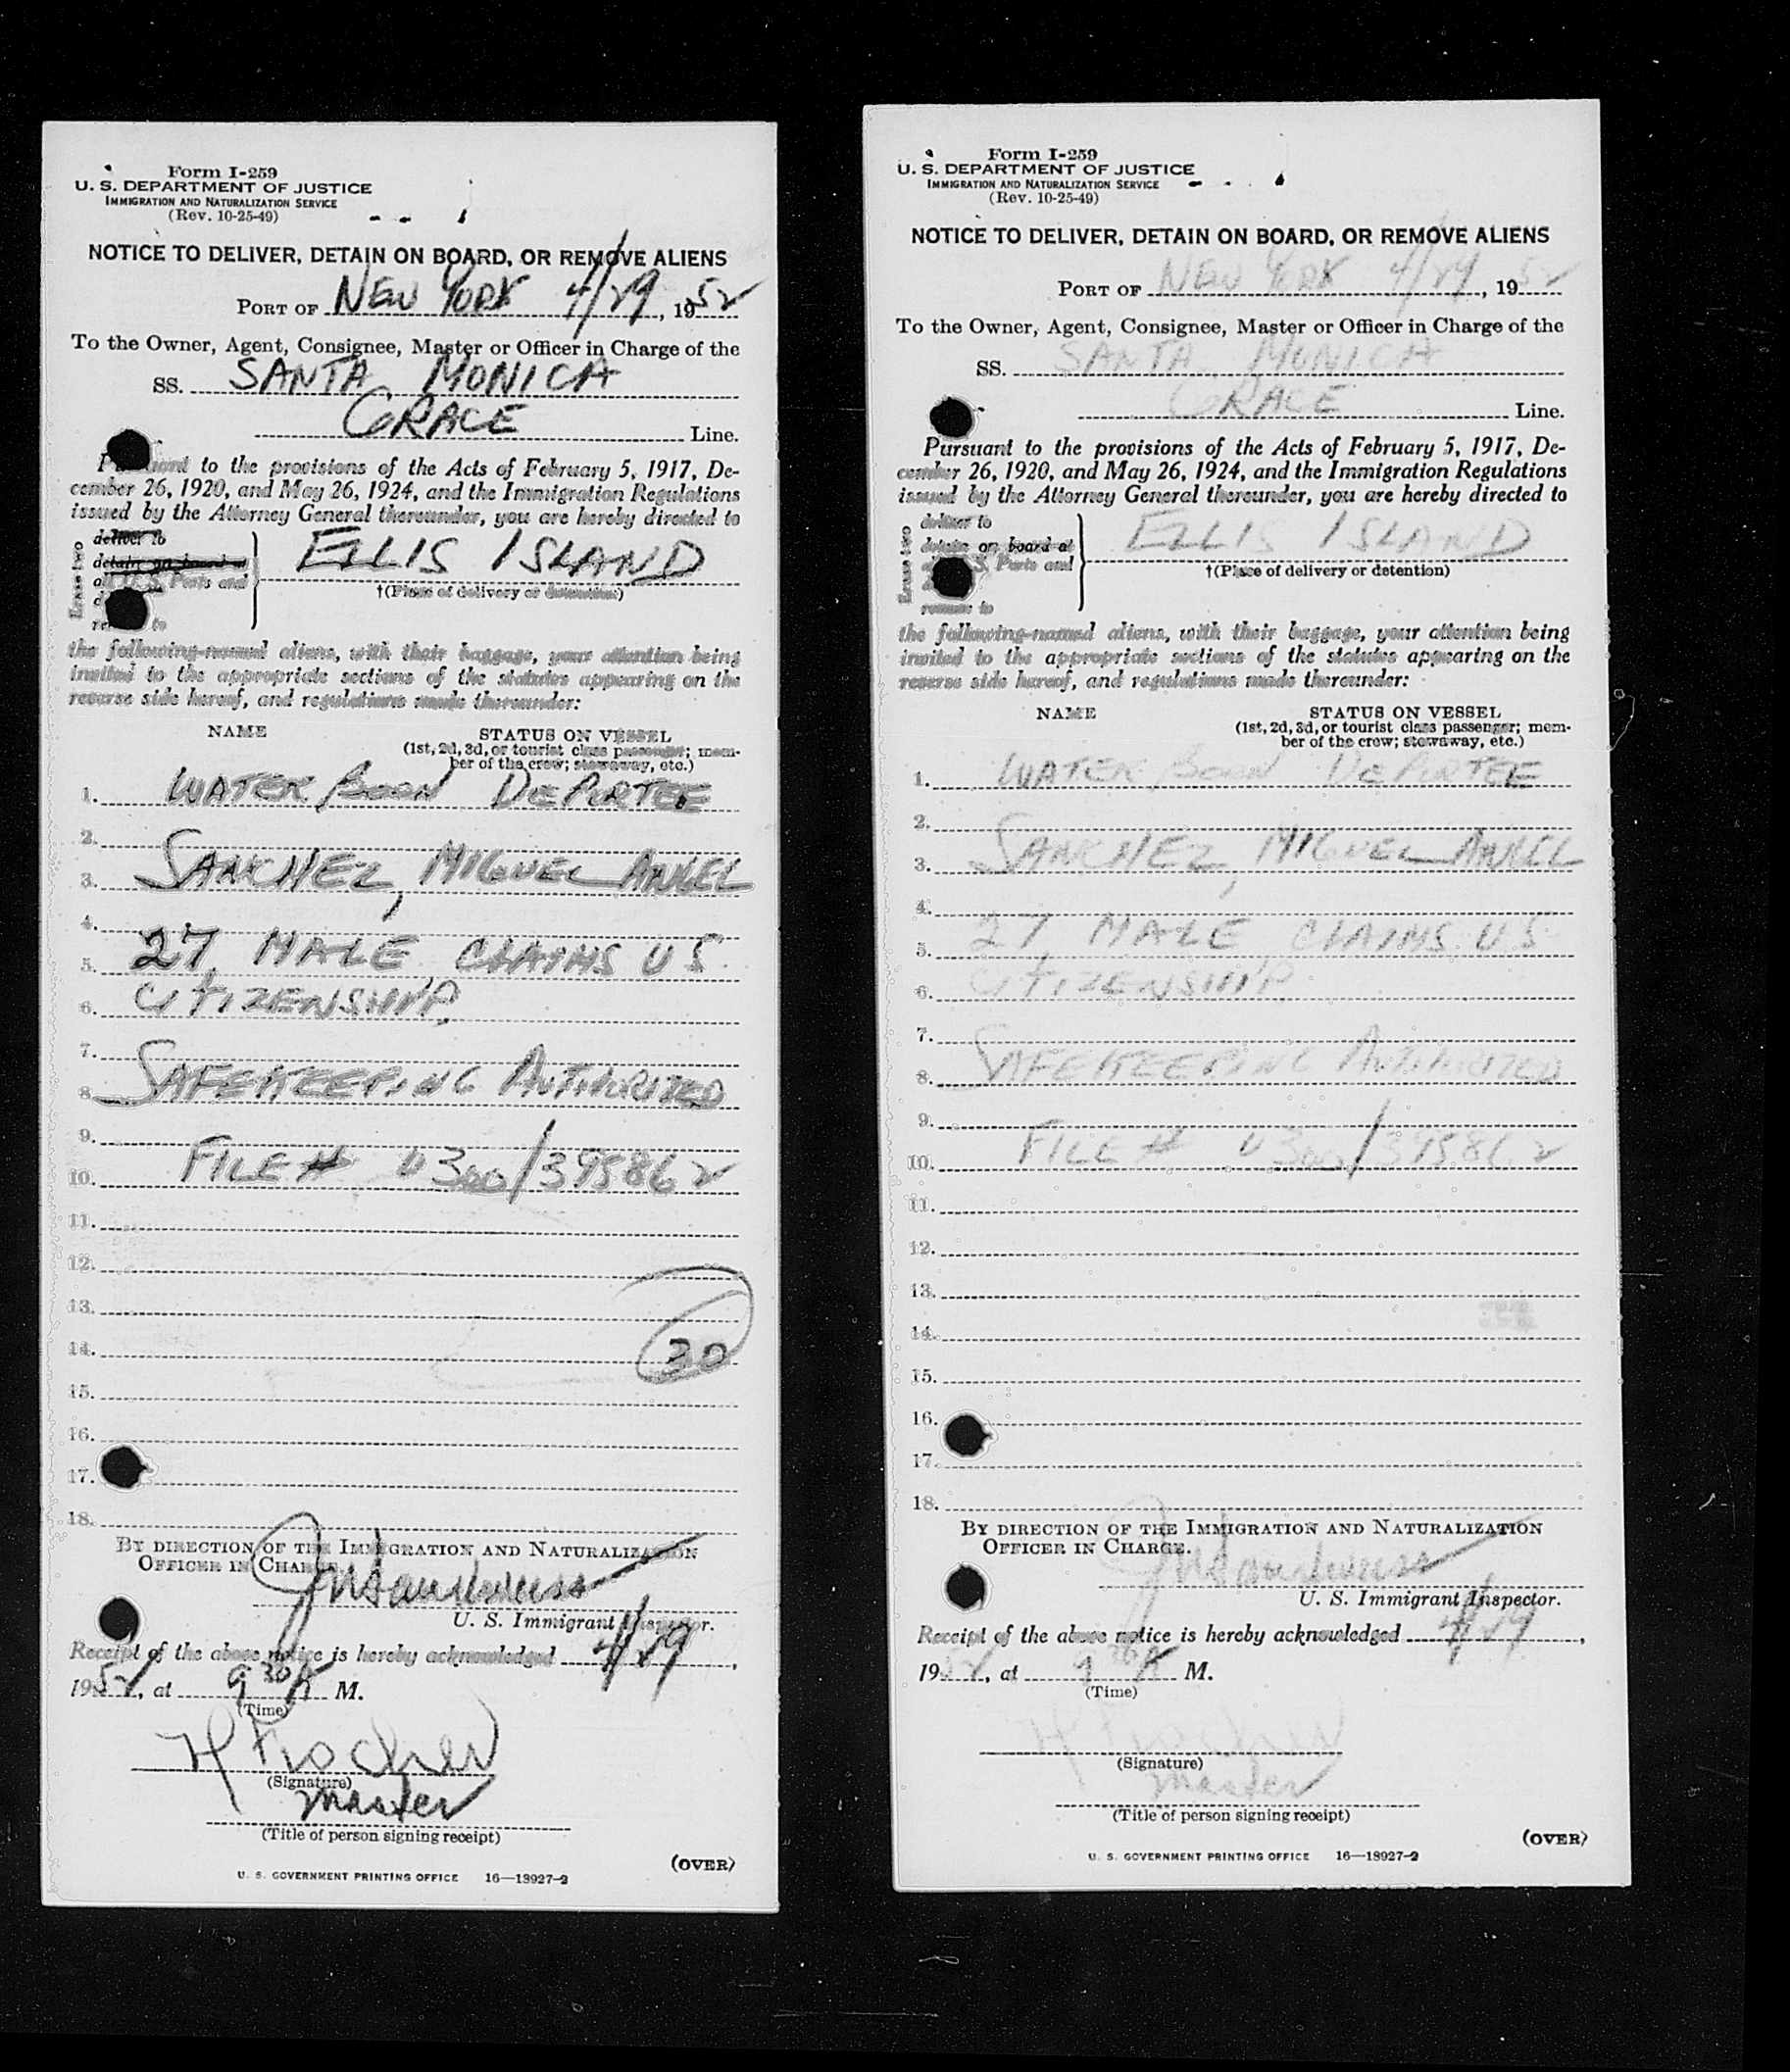 Form I-259
U. S. DEPARTMENT OF JUSTICE
IMMIGRATION AND NATURALIZATION SERVICE
(Rev. 10-25-49)
NOTICE TO DELIVER, DETAIN ON BOARD, OR REMOVE ALIENS
PORT OF NEW YORK 4/29, 1952
To the Owner, Agent, Consignee, Master or Officer in Charge of the
SS. SANTA MONICA
GRACE Line.
Pursuant to the provisions of the Acts of February 5, 1917, De-
cember 26, 1920, and May 26, 1924, and the Immigration Regulations
issued by the Attorney General thereunder, you are hereby directed to
deliver to
detain on board at
all U. S. Ports and
ELLIS ISLAND
†(Place of delivery or detention)
remove to
Erase two
the following-named aliens, with their baggage, your attention being
invited to the appropriate sections of the statutes appearing on the
reverse side hereof, and regulations made thereunder:
NAME STATUS ON VESSEL
(1st, 2d, 3d, or tourist class passenger; mem-
ber of the crew; stowaway, etc.)
1. WATER BORN DEPORTEE
2.
3. SANCHEZ, MIGUEL ANGEL
4.
5. 27, MALE, CLAIMS US
6. CITIZENSHIP.
7.
8. SAFEKEEPING AUTHORIZED
9.
10. FILE # 0300/395862
11.
12.
13.
14. 30
15.
16.
17.
18.
BY DIRECTION OF THE IMMIGRATION AND NATURALIZATION
OFFICER IN CHARGE.
U. S. Immigrant Inspector.
Receipt of the above notice is hereby acknowledged 4/29,
1952, at 9 30 A M.
(Time)
H Fischer
(Signature)
Master
(Title of person signing receipt)
(OVER)
U. S. GOVERNMENT PRINTING OFFICE 16—13927-2
Form I-259
U. S. DEPARTMENT OF JUSTICE
IMMIGRATION AND NATURALIZATION SERVICE
(Rev. 10-25-49)
NOTICE TO DELIVER, DETAIN ON BOARD, OR REMOVE ALIENS
PORT OF NEW YORK 4/29, 1952
To the Owner, Agent, Consignee, Master or Officer in Charge of the
SS. SANTA MONICA
GRACE Line.
Pursuant to the provisions of the Acts of February 5, 1917, De-
cember 26, 1920, and May 26, 1924, and the Immigration Regulations
issued by the Attorney General thereunder, you are hereby directed to
deliver to
detain on board at
S. Ports and
ELLIS ISLAND
†(Place of delivery or detention)
remove to
Erase two
the following-named aliens, with their baggage, your attention being
invited to the appropriate sections of the statutes appearing on the
reverse side hereof, and regulations made thereunder:
NAME STATUS ON VESSEL
(1st, 2d, 3d, or tourist class passenger; mem-
ber of the crew; stowaway, etc.)
1. WATER BORN DEPORTEE
2.
3. SANCHEZ, MIGUEL ANGEL
4.
5. 27, MALE, CLAIMS US
6. CITIZENSHIP
7.
8. SAFEKEEPING AUTHORIZED
9.
10. FILE # 0300/395862
11.
12.
13.
14.
15.
16.
17.
18.
BY DIRECTION OF THE IMMIGRATION AND NATURALIZATION
OFFICER IN CHARGE.
U. S. Immigrant Inspector.
Receipt of the above notice is hereby acknowledged 4/29,
1952, at 9 30 A M.
(Time)
H Fischer
(Signature)
Master
(Title of person signing receipt)
(OVER)
U. S. GOVERNMENT PRINTING OFFICE 16—13927-2